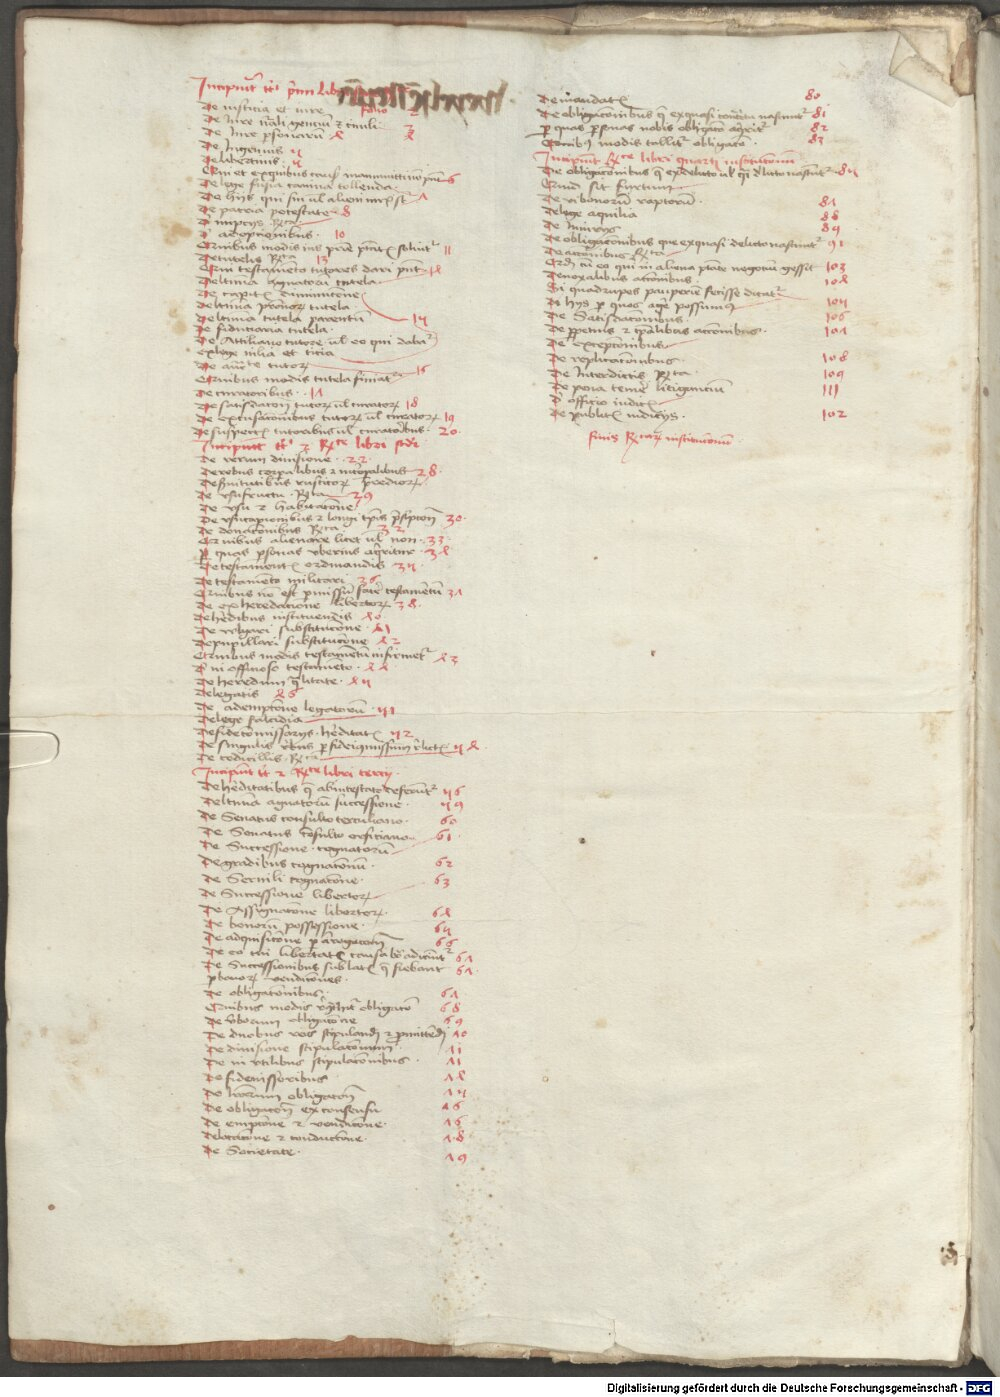 Incipiūt tt' primi libri
folio 2
De iusticia et iure
De iure nāli gencium et ciuili 3
De iure personarum 4
De Ingenuis 5
De libertinis 5
De lege fusia canina tollenda
De patria potestate 8
De nupcijs
De adopcionibus 10
De tutelis 13
De legittima agnatorum tutela
De capitis diminucione
De legittima patronorum tutela
De legittima tutela parentum 15
De fiduciaria tutela
De Attiliano tutore ul eo qui dabatur
ex lege iulia et ticia
De auctte tutorum
Quibus modis tutela finiatur 16
De curatoribus 17
De satisdacione tutorum ul curatorum 18
De excusacionibus tutorum ul curatorum 19
De suspectis tutoribus ul curatoribus 20
Incipiunt tt' et Rce libri scdi
De rerum diuisione 22
De rebus corporalibus et incorporalibus 28
De seruitutibus rusticorum prediorum
De vsufructu 29
De vsu et habitacione
De vsucapionibus et longi temporis prescripcione 30
De donacionibus 32
Quibus alienare licet uel non 33
Per quas personas nobis acquiritur 34
De testamentis ordinandis 35
De testamento militari 36
Quibus non est permissum facere testamentum 37
De exheredacione liberorum 38
De heredibus instituendis 40
De vulgari substitucione 41
De pupillari substitucione 42
Quibus modis testamentum infirmetur 43
De in officioso testamento 44
De heredum qualitate 45
De legatis 46
De ademptione legatorum 51
De lege falcidia
De fidecommissarijs hereditatibus 52
De codicillis
Incipiunt tt' et Rce libri tercij
De hereditatibus que ab intestato deferuntur 56
De legittima agnatorum successione 59
De Senatus consulto terculiano 60
De Senatus consulto orficiano 61
De Successione cognatorum
De gradibus cognationum 62
De Seruili cognacione 63
De Successione libertorum
De Assignacione libertorum 64
De bonorum possessione 65
De adquisicione per arrogacionem 66
De eo cui libertatis causa bona adiciuntur 67
De Successionibus sublatis que fiebant 67
per bonorum vendiciones
De obligacionibus 67
Quibus modis re contrahitur obligacio 68
De verborum obligacione 69
De duobus reis stipulandi et promittendi 70
De diuisione stipulacionum 71
De in vtilibus stipulacionibus 71
De fideiussoribus 74
De literarum obligacione 75
De obligacione ex consensu 76
De empcione et vendicione 76
De locacione et conductione 78
De Societate 79
De mandatis 80
De obligacionibus que ex quasi contractu nascuntur 81
Per quas personas nobis obligacio acquiritur 82
Quibus modis tollitur obligacio 83
Incipiunt Rce libri quarti institucionum
De obligacionibus que ex delicto uel quasi delicto nascuntur 85
Quid sit furtum
De vi bonorum raptorum 87
De lege aquilia 88
De iniurijs 89
De obligacionibus que ex quasi delicto nascuntur 91
De accionibus
Quod cum eo qui in aliena potestate negocium gessit 103
De noxalibus accionibus 104
Si quadrupes pauperiem fecisse dicatur
De hijs per quos agere possumus 105
De Satisdacionibus 106
De perpetuis et temporalibus accionibus 107
De excepcionibus
De replicacionibus 108
De Interdictis 109
De pena temere litigancium 111
De officio iudicis
De publicis iudicijs 102
Finis Rcarum institucionum
Digitalisierung gefördert durch die Deutsche Forschungsgemeinschaft - DFG